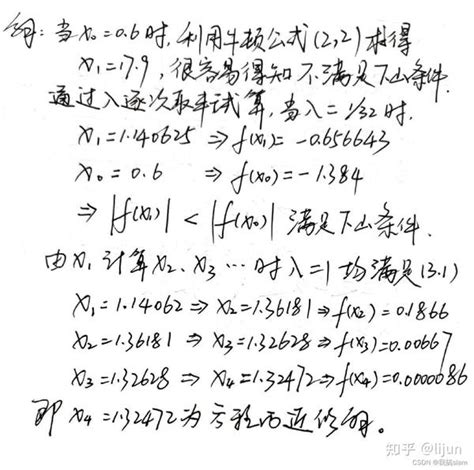 解: 当x₀=0.6时, 利用牛顿公式(2,2)求得
x₁=17.9, 很容易得知不满足下山条件.
通过λ逐次取半试算, 当λ=1/32时.
x₁=1.140625 ⇒ f(x₁)= -0.656643
x₀=0.6 ⇒ f(x₀)=-1.384
⇒ |f(x₁)| < |f(x₀)| 满足下山条件.
由x₁计算x₂、x₃…时λ=1均满足(3.1)
x₁=1.14062 ⇒ x₂=1.36181 ⇒ f(x₂)=0.1866
x₂=1.36181 ⇒ x₃=1.32628 ⇒ f(x₃)=0.00667
x₃=1.32628 ⇒ x₄=1.32472 ⇒ f(x₄)=0.0000086
即 x₄=1.32472为方程的近似解。
知乎 @lijun
CSDN